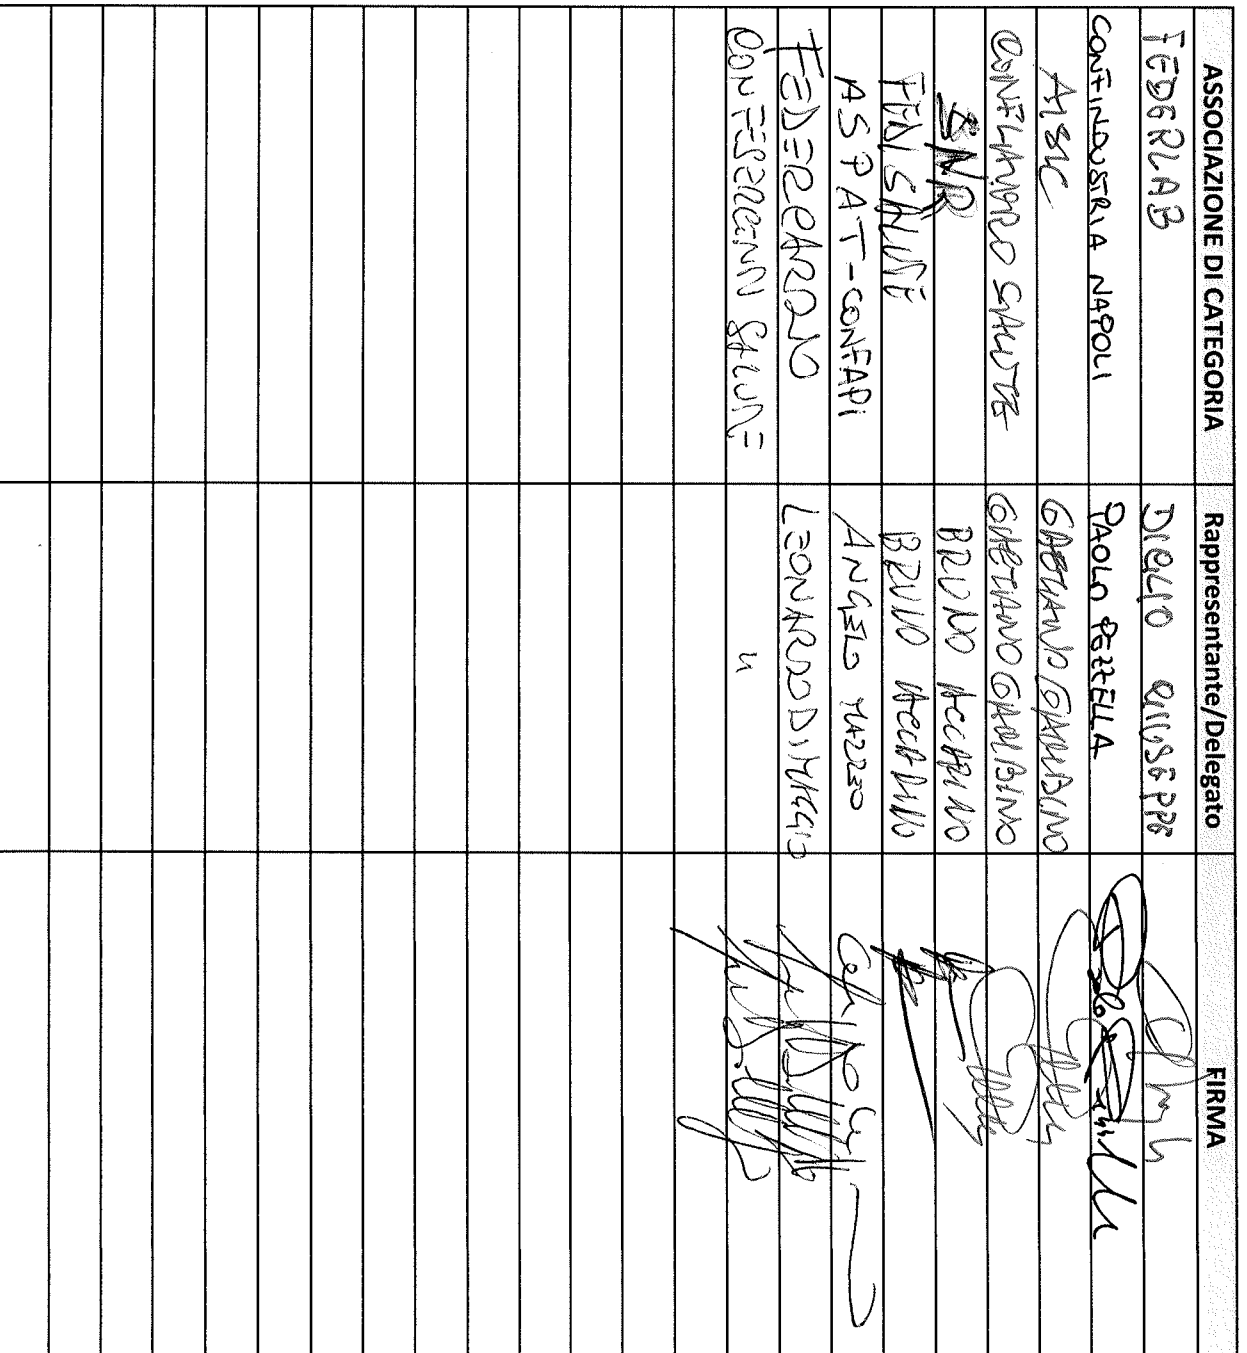 ASSOCIAZIONE DI CATEGORIA Rappresentante/Delegato FIRMA
FEDERLAB DIGLIO GIUSEPPE
CONFINDUSTRIA NAPOLI PAOLO PEZZELLA
AISIC GAETANO GAMBINO
CONFLAVORO SALUTE GAETANO GAMBINO
SNR BRUNO ACCARINO
FENISALUTE BRUNO ACCARINO
ASPAT-CONFAPI ANGELO MAZZEO
FEDERCARDIO LEONARDO DI MAGGIO
CONFESERCENTI SALUTE "